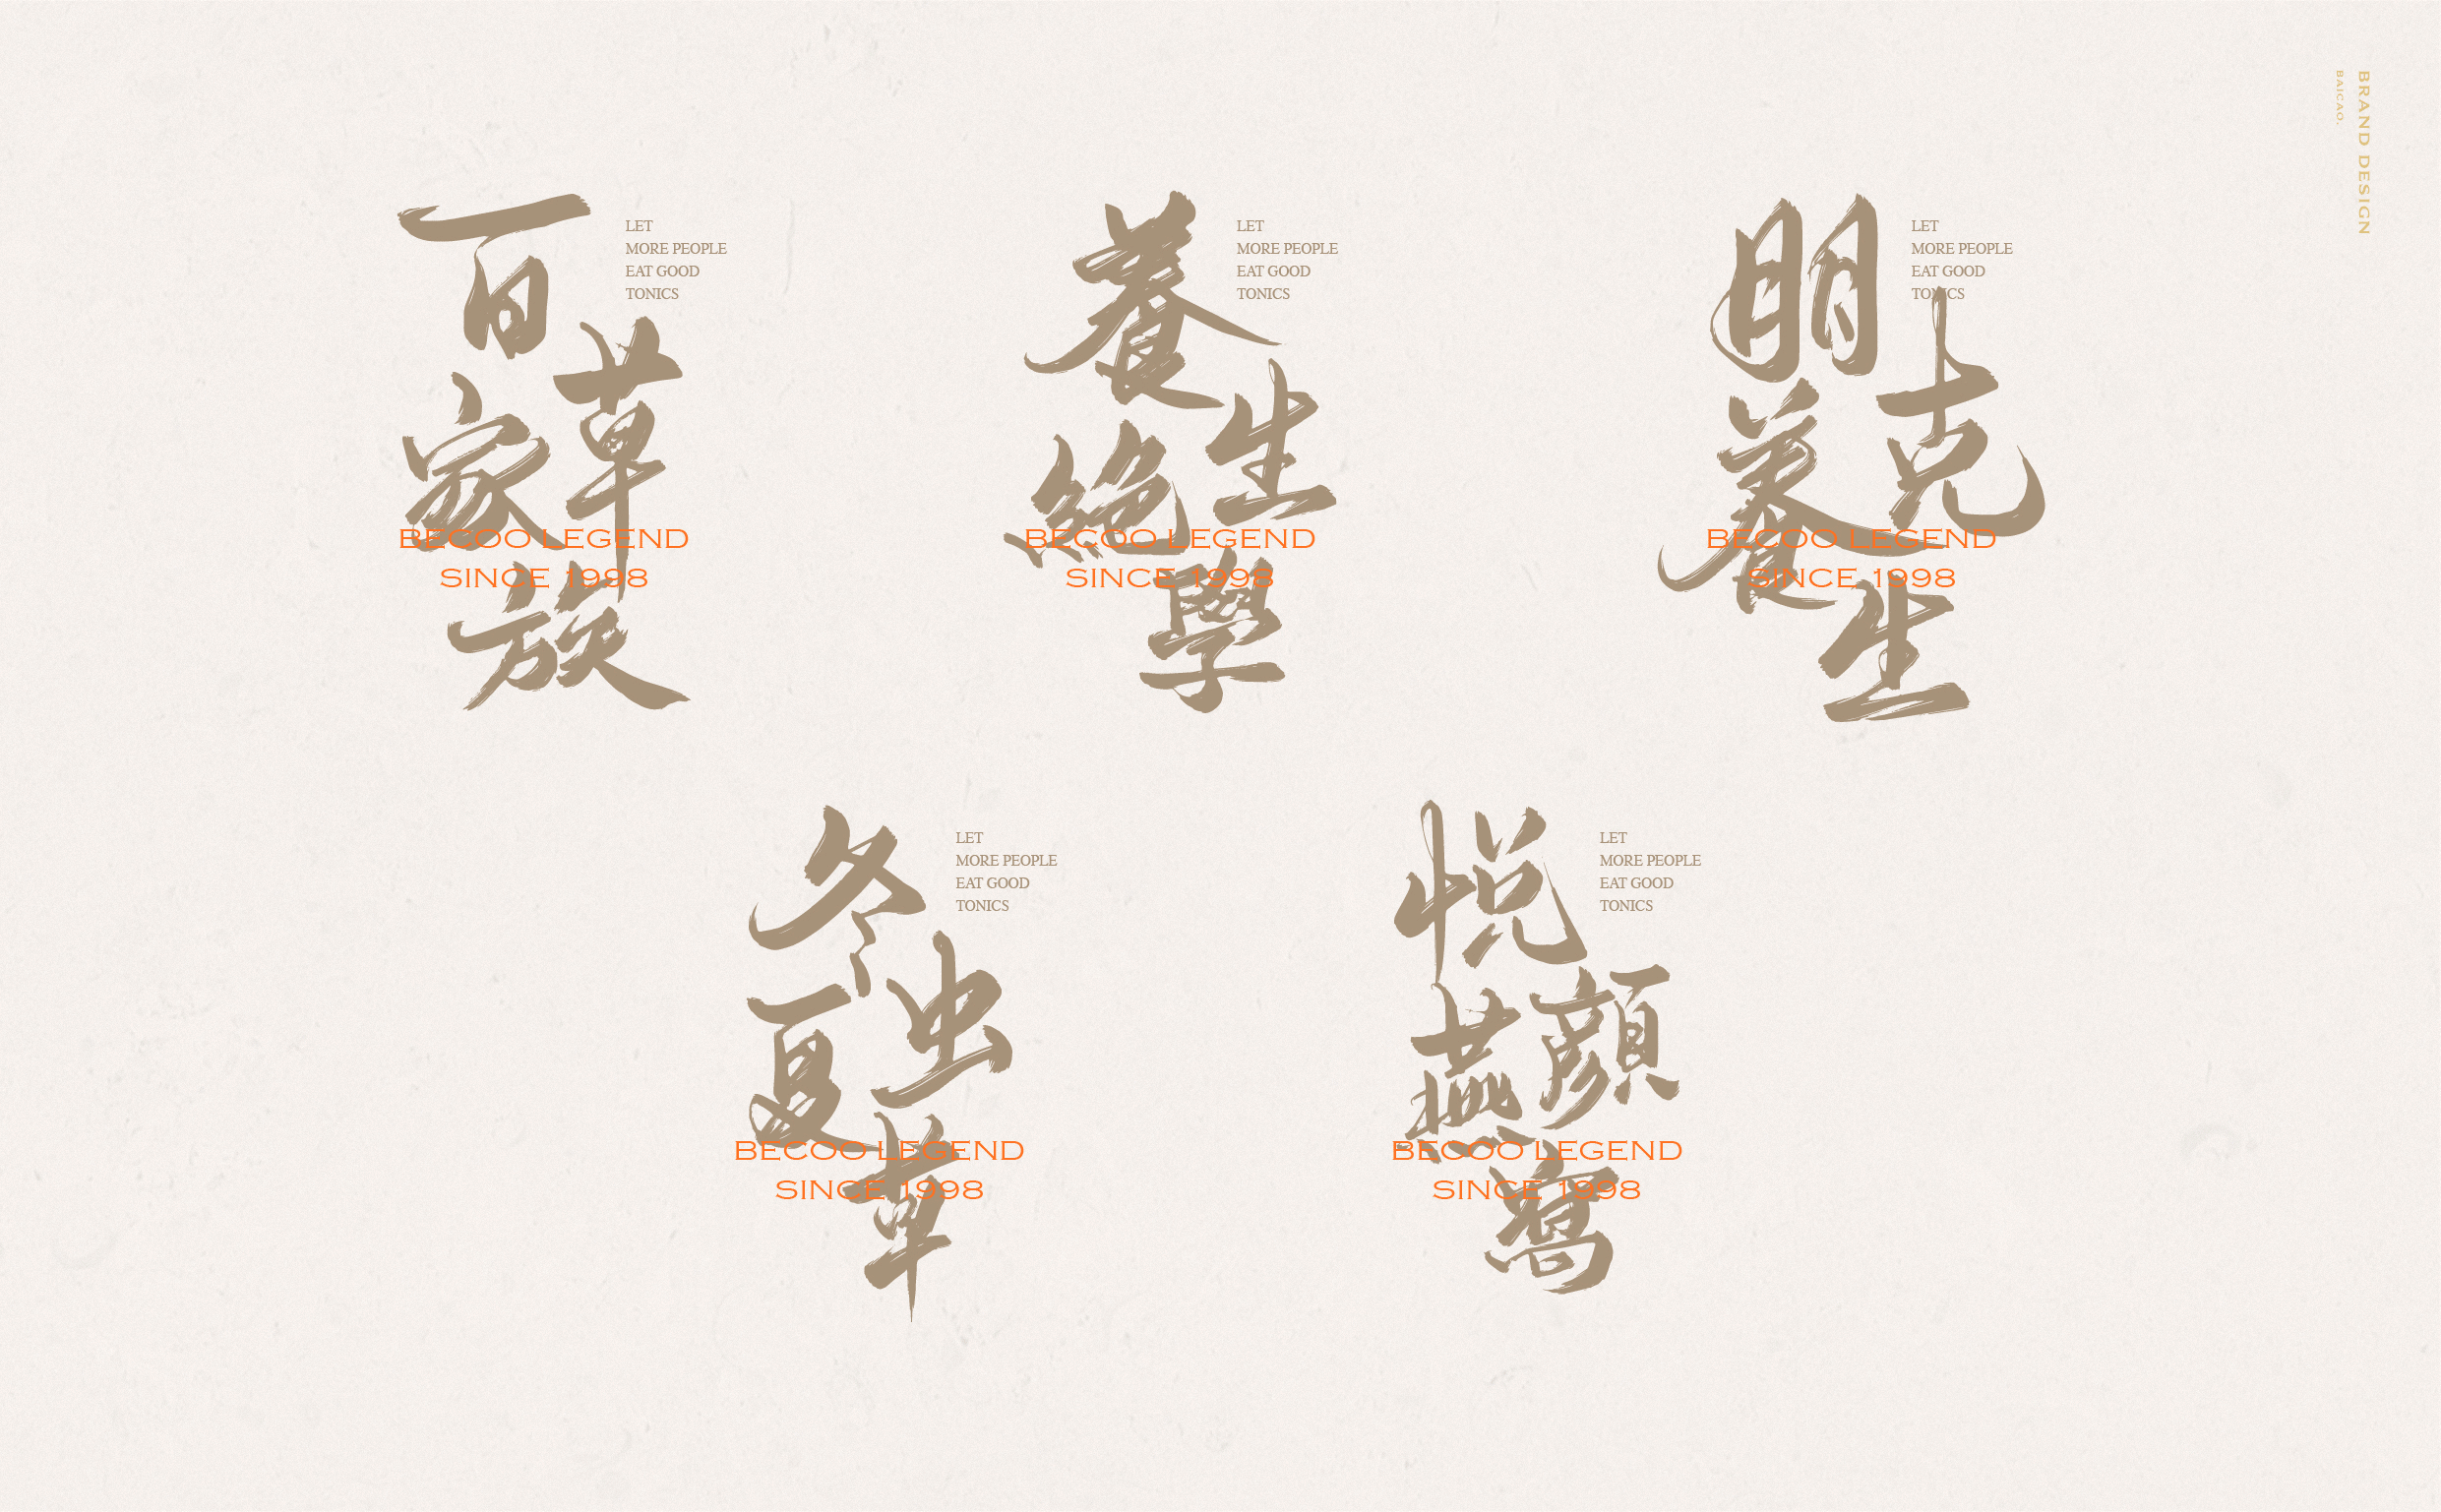 BRAND DESIGN
BAICAO.
百草家族
LET
MORE PEOPLE
EAT GOOD
TONICS
BECOO LEGEND
SINCE 1998
養生絕學
LET
MORE PEOPLE
EAT GOOD
TONICS
BECOO LEGEND
SINCE 1998
朋克養生
LET
MORE PEOPLE
EAT GOOD
TONICS
BECOO LEGEND
SINCE 1998
冬虫夏草
LET
MORE PEOPLE
EAT GOOD
TONICS
BECOO LEGEND
SINCE 1998
悦顔燕窩
LET
MORE PEOPLE
EAT GOOD
TONICS
BECOO LEGEND
SINCE 1998